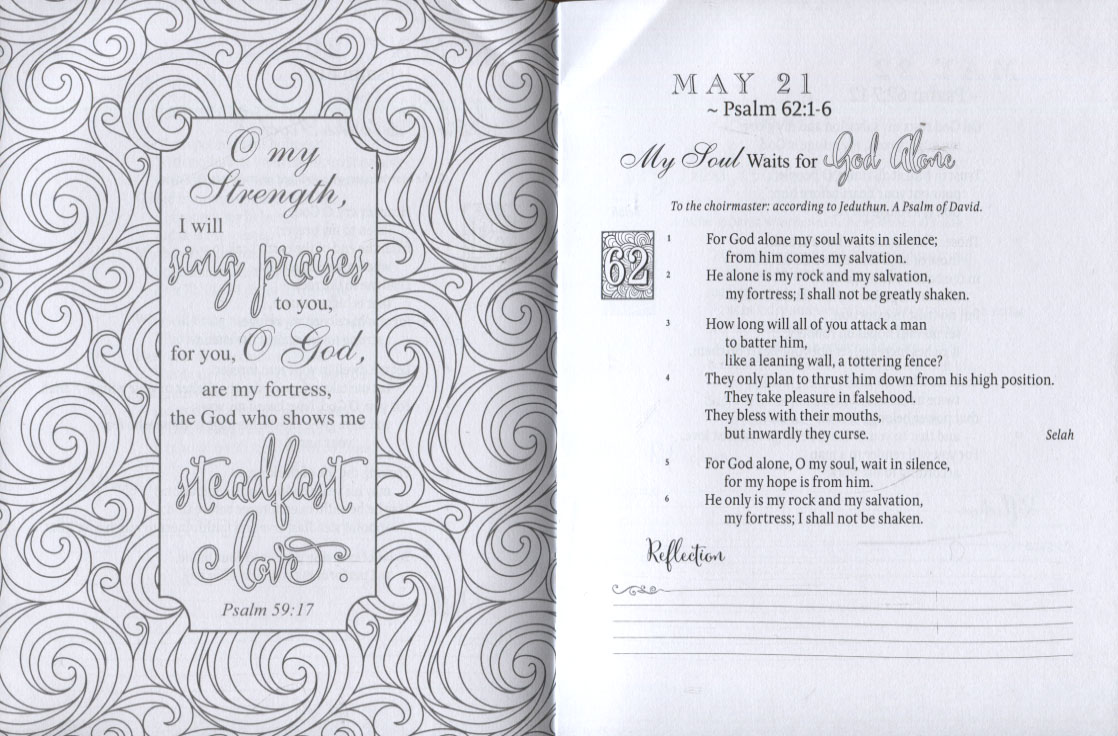 O my
Strength,
I will
sing praises
to you,
for you, O God,
are my fortress,
the God who shows me
steadfast
love.
Psalm 59:17
MAY 21
~ Psalm 62:1-6
My Soul Waits for God Alone
To the choirmaster: according to Jeduthun. A Psalm of David.
62
1 For God alone my soul waits in silence;
from him comes my salvation.
2 He alone is my rock and my salvation,
my fortress; I shall not be greatly shaken.
3 How long will all of you attack a man
to batter him,
like a leaning wall, a tottering fence?
4 They only plan to thrust him down from his high position.
They take pleasure in falsehood.
They bless with their mouths,
but inwardly they curse. Selah
5 For God alone, O my soul, wait in silence,
for my hope is from him.
6 He only is my rock and my salvation,
my fortress; I shall not be shaken.
Reflection